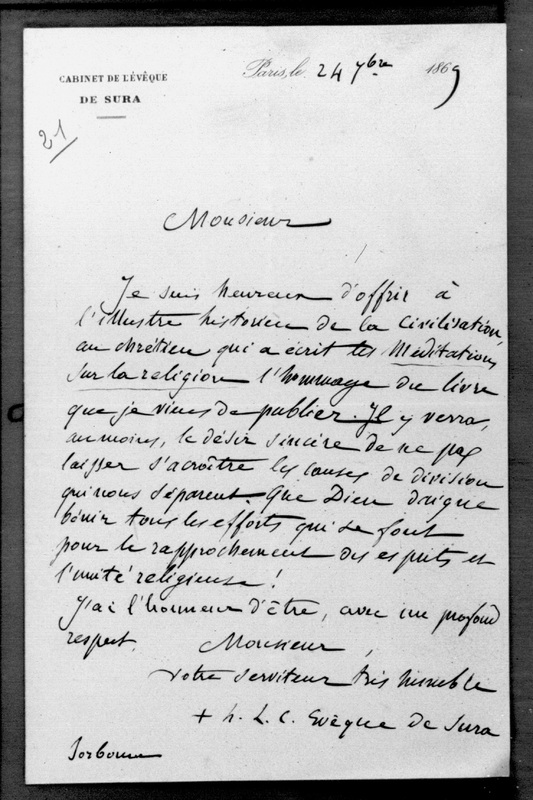 CABINET DE L'ÉVÊQUE
DE SURA
Paris, le 24 7bre 1869
21
Monsieur
Je suis heureux d'offrir à
l'illustre historien de la Civilisation,
au chrétien qui a écrit les Méditations
sur la religion l'hommage du livre
que je viens de publier. Il y verra,
au moins, le désir sincère de ne pas
laisser s'acroître les causes de division
qui nous séparent. Que Dieu daigne
bénir tous les efforts qui se font
pour le rapprochement des esprits et
l'unité religieuse !
J'ai l'honneur d'être, avec un profond
respect, Monsieur,
votre serviteur très humble
+ h. L. C. Evêque de Sura
Sorbonne